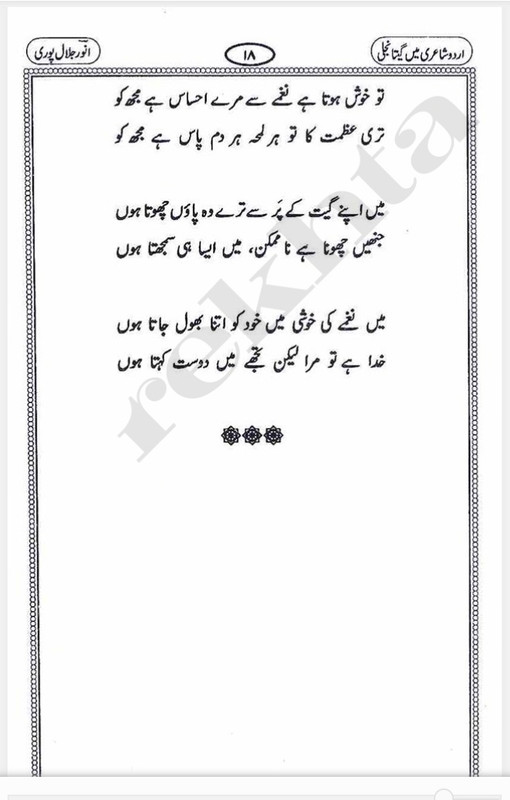 اردو شاعری میں گیتانجلی ۱۸ انور جلال پوری
تو خوش ہوتا ہے نغمے سے مرے احساس ہے مجھ کو
تری عظمت کا تو ہر لمحہ ہر دم پاس ہے مجھ کو
میں اپنے گیت کے پَر سے ترے وہ پاؤں چھوتا ہوں
جنھیں چھونا ہے نا ممکن، میں ایسا ہی سمجھتا ہوں
میں نغمے کی خوشی میں خود کو اتنا بھول جاتا ہوں
خدا ہے تو مرا لیکن تجھے میں دوست کہتا ہوں
rekhta